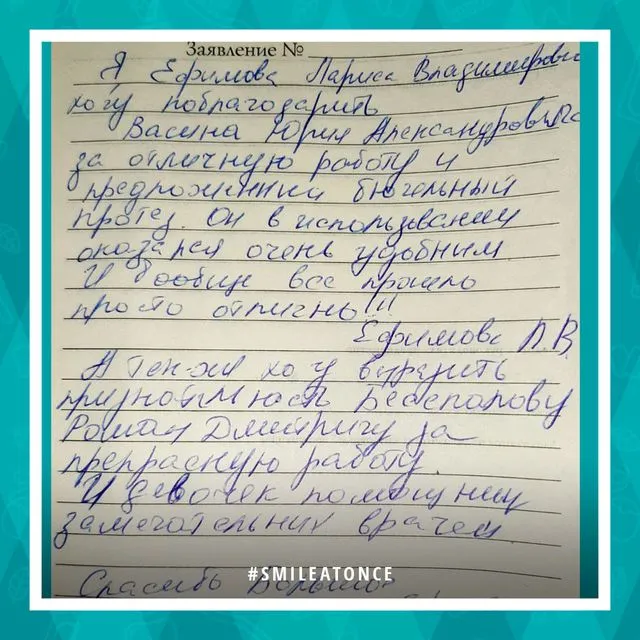 Заявление №
Я Ефимова Лариса Владимировн
хочу поблагодарить
Васина Юрия Александровича
за отличную работу и
предложенный бюгельный
протез. Он в использовании
оказался очень удобним.
И вообще все прошло
просто отлично!!!
Ефимова Л.В.
А так-же хочу выразить
признательность Беспалову
Роману Дмитричу за
прекрасную работу.
И девочек помощниц
замечательних врачей.
#SMILEATONCE
Спасибо Большое